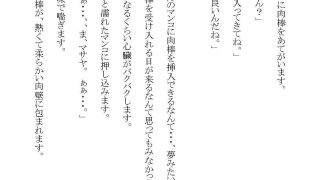 に肉棒をあてがいます。
ん？」
入ってきてね。」
良いんだね。」
のマンコに肉棒を挿入できるなんて・・・、夢みたい
棒を受け入れる日が来るなんて思ってもみなかっ
なるくらい心臓がバクバクします。
と濡れたマンコに押し込みます。
ぁ・・・、ま、マサヤ。あぁ・・・。」
で喘ぎます。
肉棒が、熱くて柔らかい肉壁に包まれます。